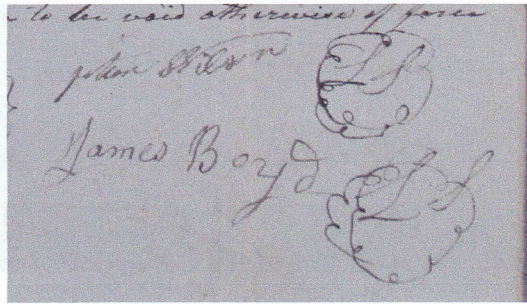 to be void otherwise of force
John Wilson LS
James Boyd LS